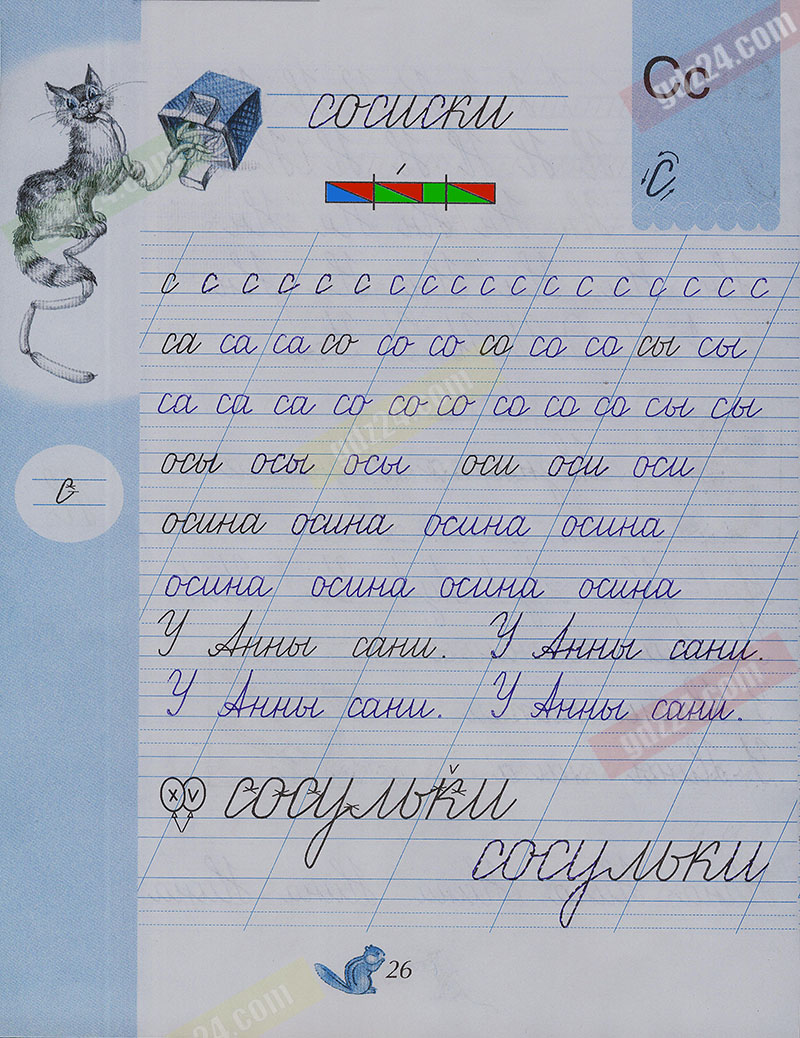 gdz24.com
Сс
сосиски
С
с с с с с с с с с с с с с с с с с с
са са са со со со со со со сы сы
са са са со со со со со со сы сы
с
осы осы осы оси оси оси
осина осина осина осина
осина осина осина осина
У Анны сани. У Анны сани.
У Анны сани. У Анны сани.
gdz24.com
x v сосульки
сосульки
26